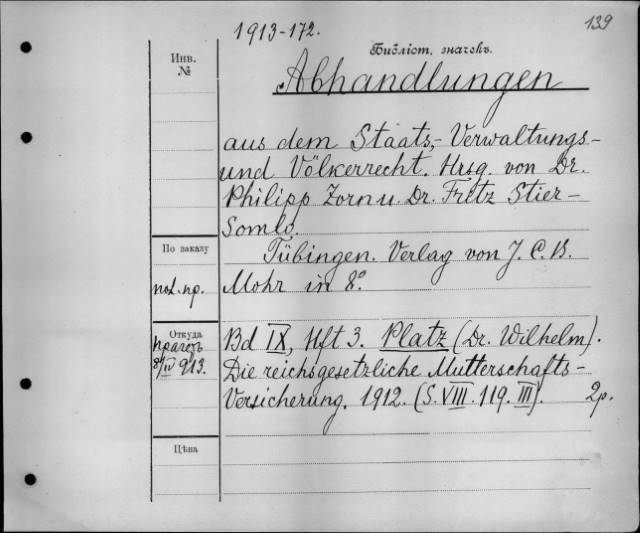 139
1913-172.
Инв.
№
Библіот. значекъ.
Abhandlungen
aus dem Staats,- Verwaltungs-
und Völkerrecht. Hrsg. von Dr.
Philipp Zorn u. Dr. Fritz Stier-
Somlo.
По заказу
Tübingen. Verlag von J. C. B.
Mohr in 8º.
Откуда
Bd IX, Hft 3. Platz (Dr. Wilhelm).
913.
Die reichsgesetzliche Mutterschafts-
Versicherung. 1912. (S. VIII. 119. III). 2р.
Цѣна